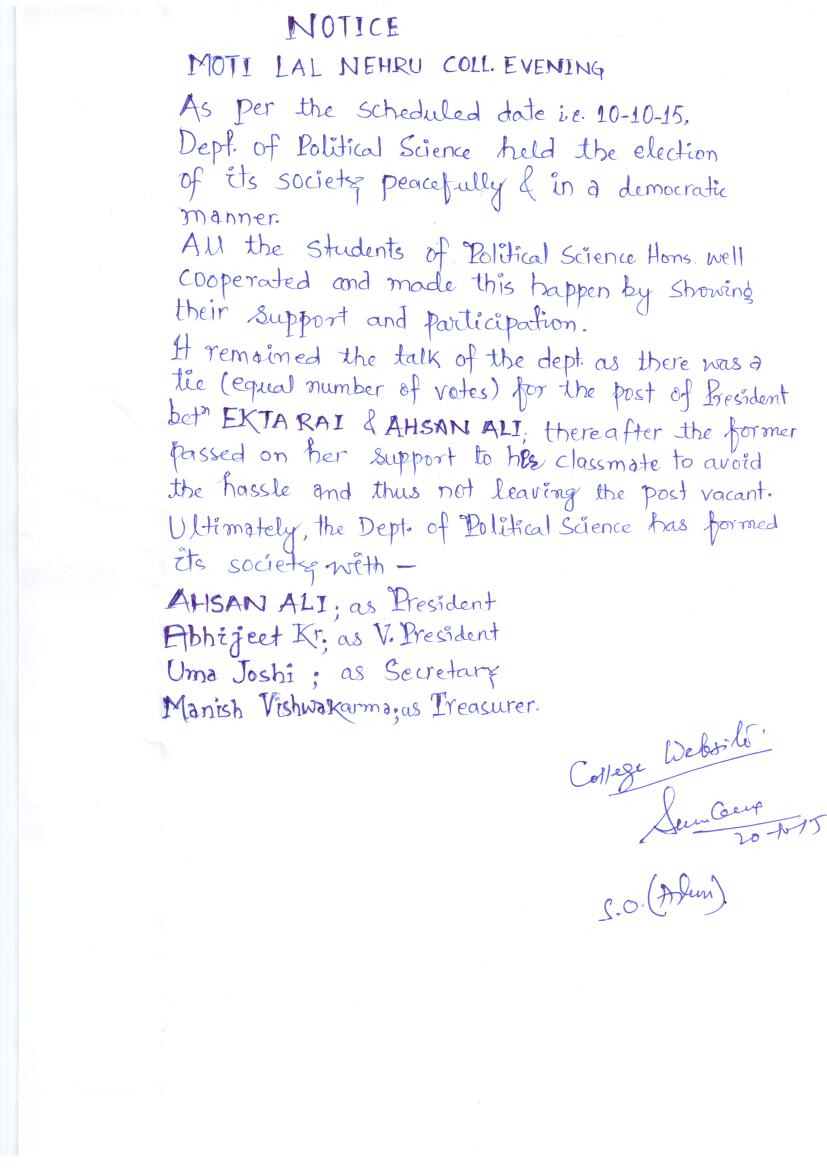 NOTICE
MOTI LAL NEHRU COLL. EVENING
As Per the scheduled date i.e. 10-10-15,
Deptt. of Political Science held the election
of its society peacefully & in a democratic
manner.
All the students of Political Science Hons. well
cooperated and made this happen by showing
their support and participation.
It remained the talk of the dept. as there was a
tie (equal number of votes) for the post of President
betn EKTA RAI & AHSAN ALI; thereafter the former
passed on her support to her classmate to avoid
the hassle and thus not leaving the post vacant.
Ultimately, the Dept. of Political Science has formed
its society with —
AHSAN ALI; as President
Abhijeet Kr; as V. President
Uma Joshi ; as Secretary
Manish Vishwakarma; as Treasurer.
College Website.
20-10-15
S.O. (Admn)